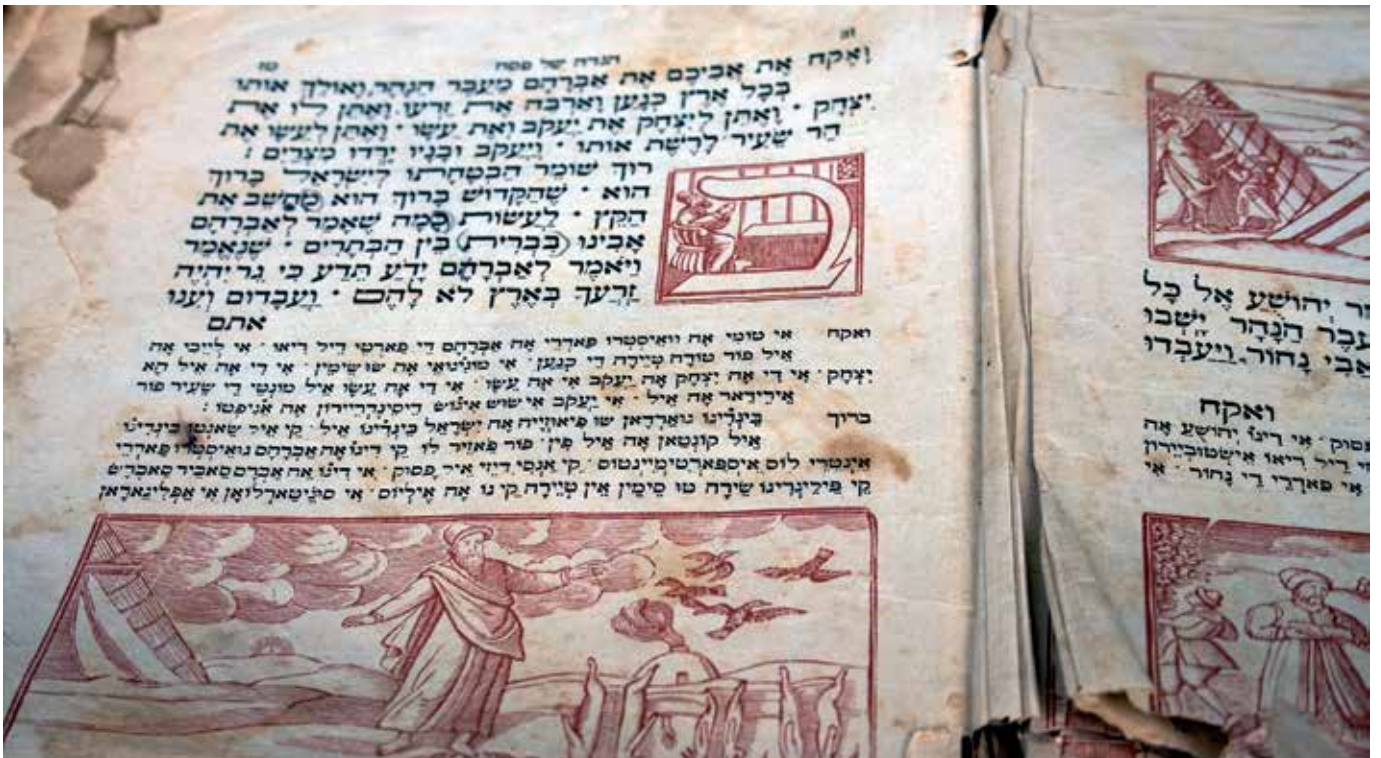 הגדה של פסח
וָאֶקַּח אֶת אֲבִיכֶם אֶת אַבְרָהָם מֵעֵבֶר הַנָּהָר, וָאוֹלֵךְ אוֹתוֹ
בְּכָל אֶרֶץ כְּנָעַן וָאַרְבֶּה אֶת זַרְעוֹ, וָאֶתֶּן לוֹ אֶת
יִצְחָק · וָאֶתֵּן לְיִצְחָק אֶת יַעֲקֹב וְאֶת עֵשָׂו · וָאֶתֵּן לְעֵשָׂו אֶת
הַר שֵׂעִיר לָרֶשֶׁת אוֹתוֹ · וְיַעֲקֹב וּבָנָיו יָרְדוּ מִצְרָיִם :
רוּךְ שׁוֹמֵר הַבְטָחָתוֹ לְיִשְׂרָאֵל בָּרוּךְ
הוּא · שֶׁהַקָּדוֹשׁ בָּרוּךְ הוּא מְחַשֵּׁב אֶת
הַקֵּץ · לַעֲשׂוֹת כְּמָה שֶׁאָמַר לְאַבְרָהָם
אָבִינוּ (בִּבְרִית) בֵּין הַבְּתָרִים · שֶׁנֶּאֱמַר
וַיֹּאמֶר לְאַבְרָהָם יָדֹעַ תֵּדַע כִּי גֵר יִהְיֶה
זַרְעֲךָ בְּאֶרֶץ לֹא לָהֶם · וַעֲבָדוּם וְעִנּוּ
אתם
ב
ואקח אי טומי אה וואיסטרו פאדרי אה אַבְרָהָם די פארטי דיל ריאו · אי לייבי אה
איל פור טודה טיירה די כְּנַעַן · אי מוגיגואי אה שו שימין · אי די אה איל הא
יִצְחָק · אי די אה יִצְחָק אה יַעֲקֹב אי אה עֵשָׂו · אי די אה עֵשָׂו איל מונטי די שֵׂעִיר פור
אירידאר אה איל · אי יַעֲקֹב אי שוש איגוש דיסינדיירון אה אגיפטו :
ברוך בינדיגו גוארדאן שו פיאוזייה אה יִשְׂרָאֵל בינדיגו איל · קי איל שאנטו בינדיגו
איל קונטאן אה איל פין · פור פאזיר לו קי דיגו אה אַבְרָהָם נואיסטרו פאדרי
אינטרי לוס איספארטימיינטוס · קי אנסי דיזי איל פסוק · אי דיגו אה אַבְרָם סאביר סאבראס
קי פיליגרינו שירה טו סימין אין טיירה קי נו אה אילייוס · אי
ר יְהוֹשֻׁעַ אֶל כָּל
עֵבֶר הַנָּהָר יָשְׁבוּ
אֲבִי נָחוֹר, וַיַּעַבְדוּ
ואקח
פסוק · אי דיגו יְהוֹשֻׁעַ אה
דיל ריאו
אי פאדרי די נָחוֹר · אי